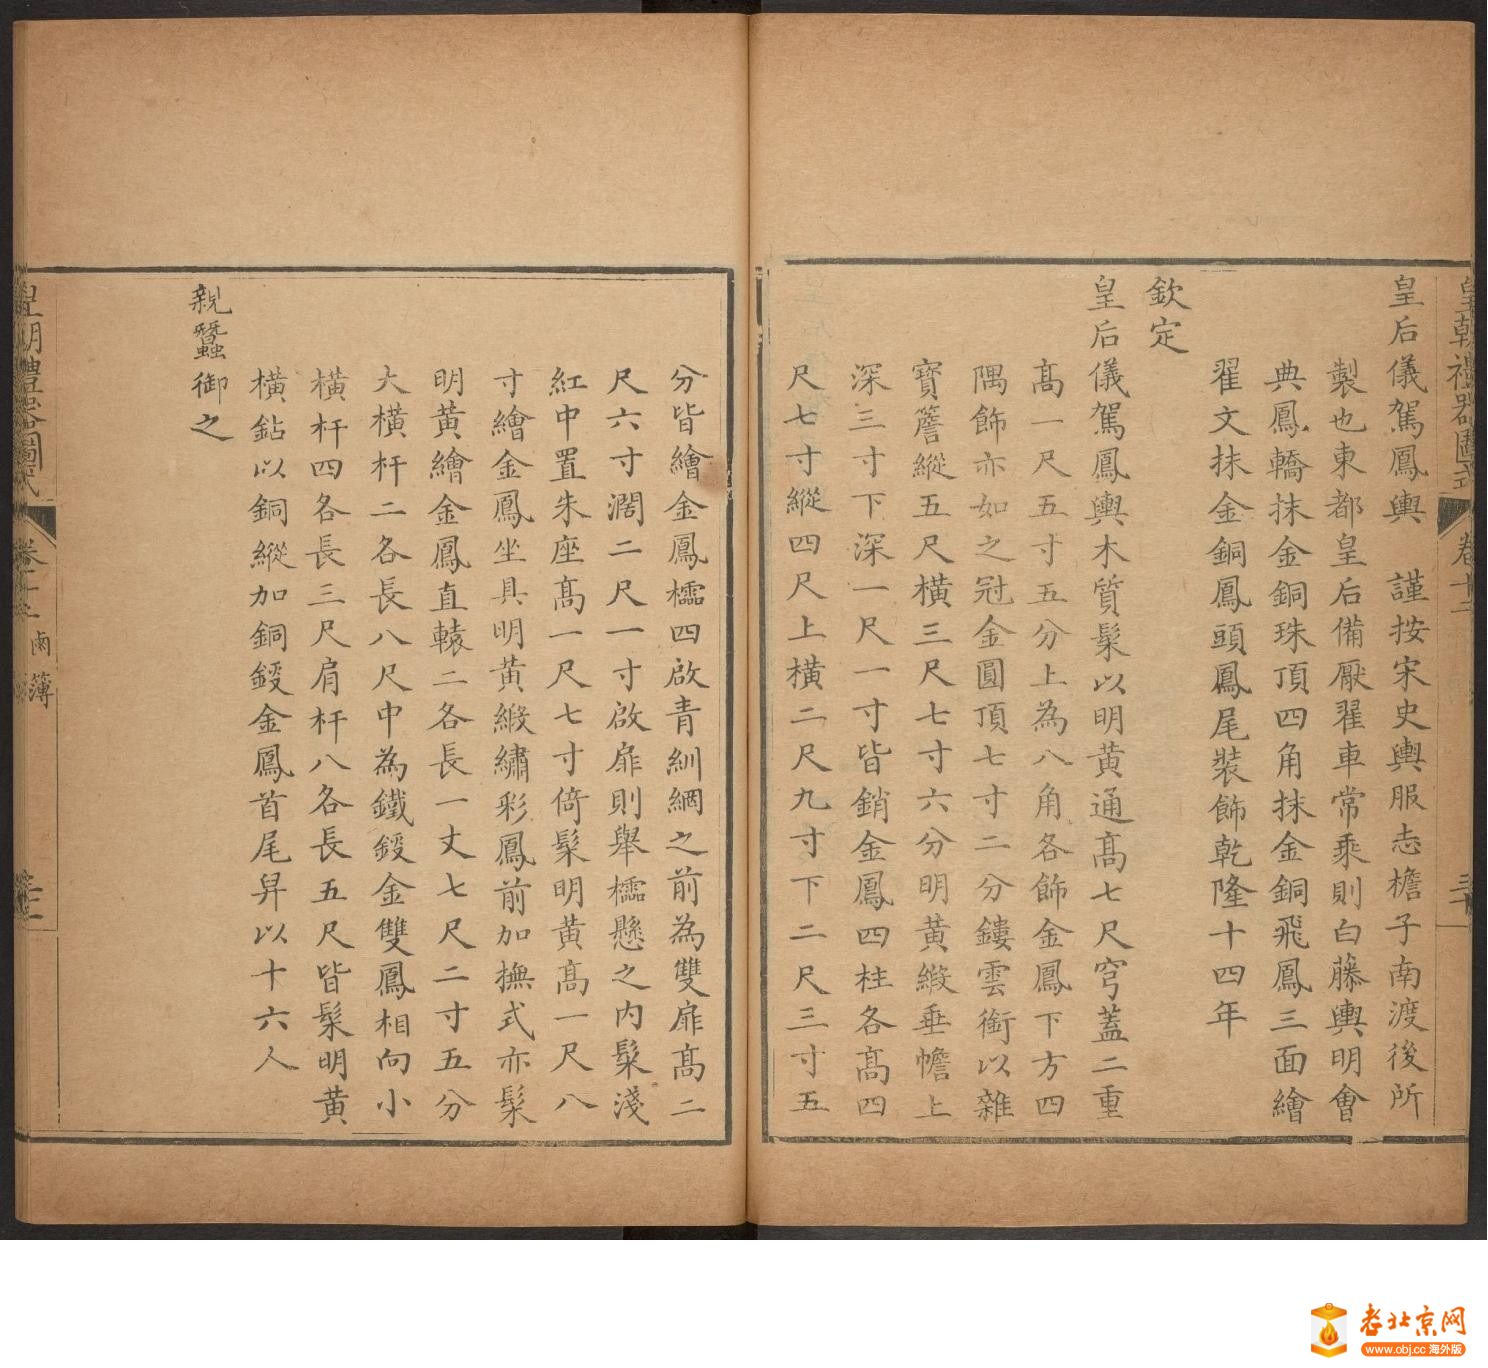 皇朝禮器圖式 卷十二 三十
皇后儀駕鳳輿 謹按宋史輿服志檐子南渡後所
製也東都皇后備厭翟車常乘則白藤輿明會
典鳳轎抹金銅珠頂四角抹金銅飛鳳三面繪
翟文抹金銅鳳頭鳳尾裝飾乾隆十四年
欽定
皇后儀駕鳳輿木質髹以明黃通高七尺穹蓋二重
高一尺五寸五分上為八角各飾金鳳下方四
隅飾亦如之冠金圓頂七寸二分鏤雲銜以雜
寶簷縱五尺橫三尺七寸六分明黃緞垂幨上
深三寸下深一尺一寸皆銷金鳳四柱各高四
尺七寸縱四尺上橫二尺九寸下二尺三寸五
分皆繪金鳳櫺四啟青紃網之前為雙扉高二
尺六寸濶二尺一寸啟扉則舉櫺懸之內髹淺
紅中置朱座高一尺七寸倚髹明黃高一尺八
寸繪金鳳坐具明黃緞繡彩鳳前加撫式亦髹
明黃繪金鳳直轅二各長一丈七尺二寸五分
大橫杆二各長八尺中為鐵鋄金雙鳳相向小
橫杆四各長三尺肩杆八各長五尺皆髹明黃
橫鈷以銅縱加銅鋄金鳳首尾舁以十六人
親蠶御之
皇朝禮器圖式 卷十二 鹵簿
老北京网
www.obj.cc 海外版